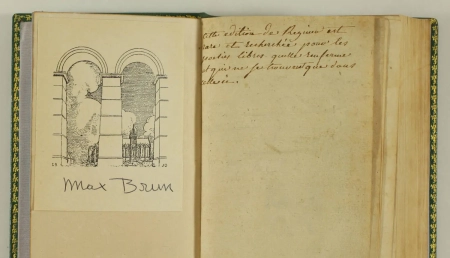 Max Brun
cette edition de Regnier est
rare et recherchée pour les
poesies libres qu'elle renferme
et qui ne se trouvent que dans